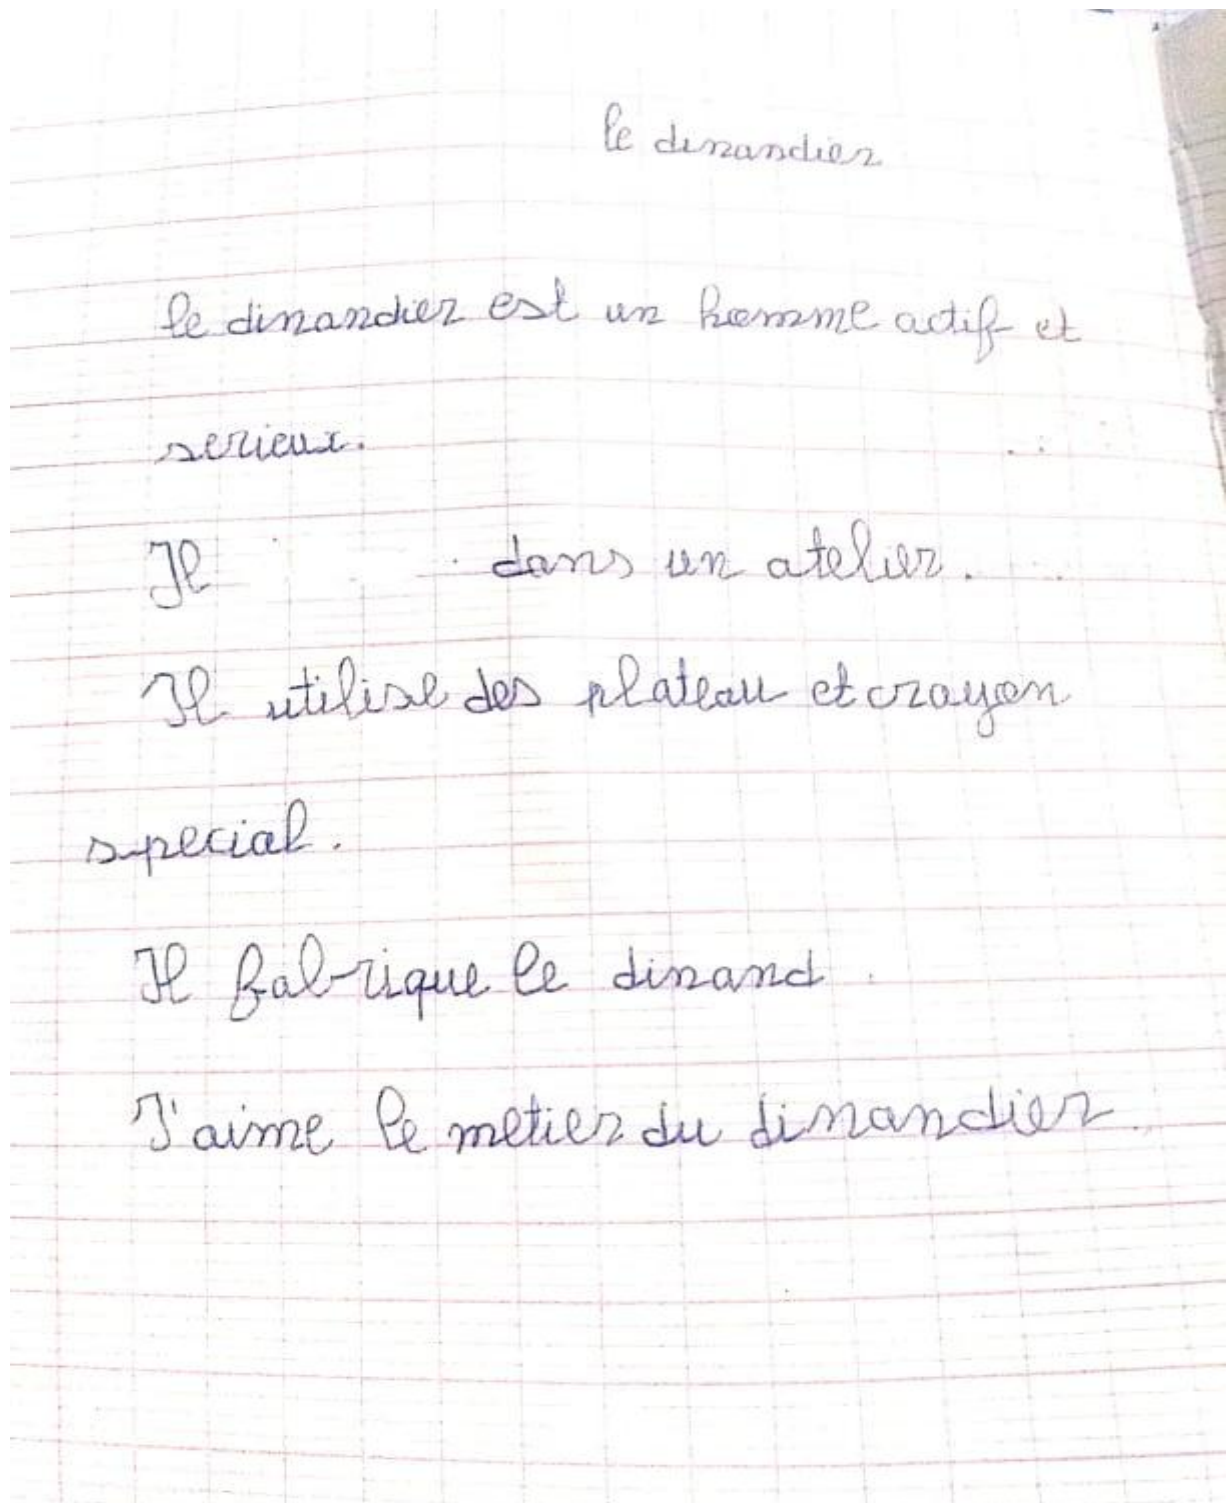 le dinandier
le dinandier est un homme actif et
serieux.
Il dans un atelier.
Il utilise des plateau et crayon
special.
Il fabrique le dinand
J'aime le metier du dinandier.